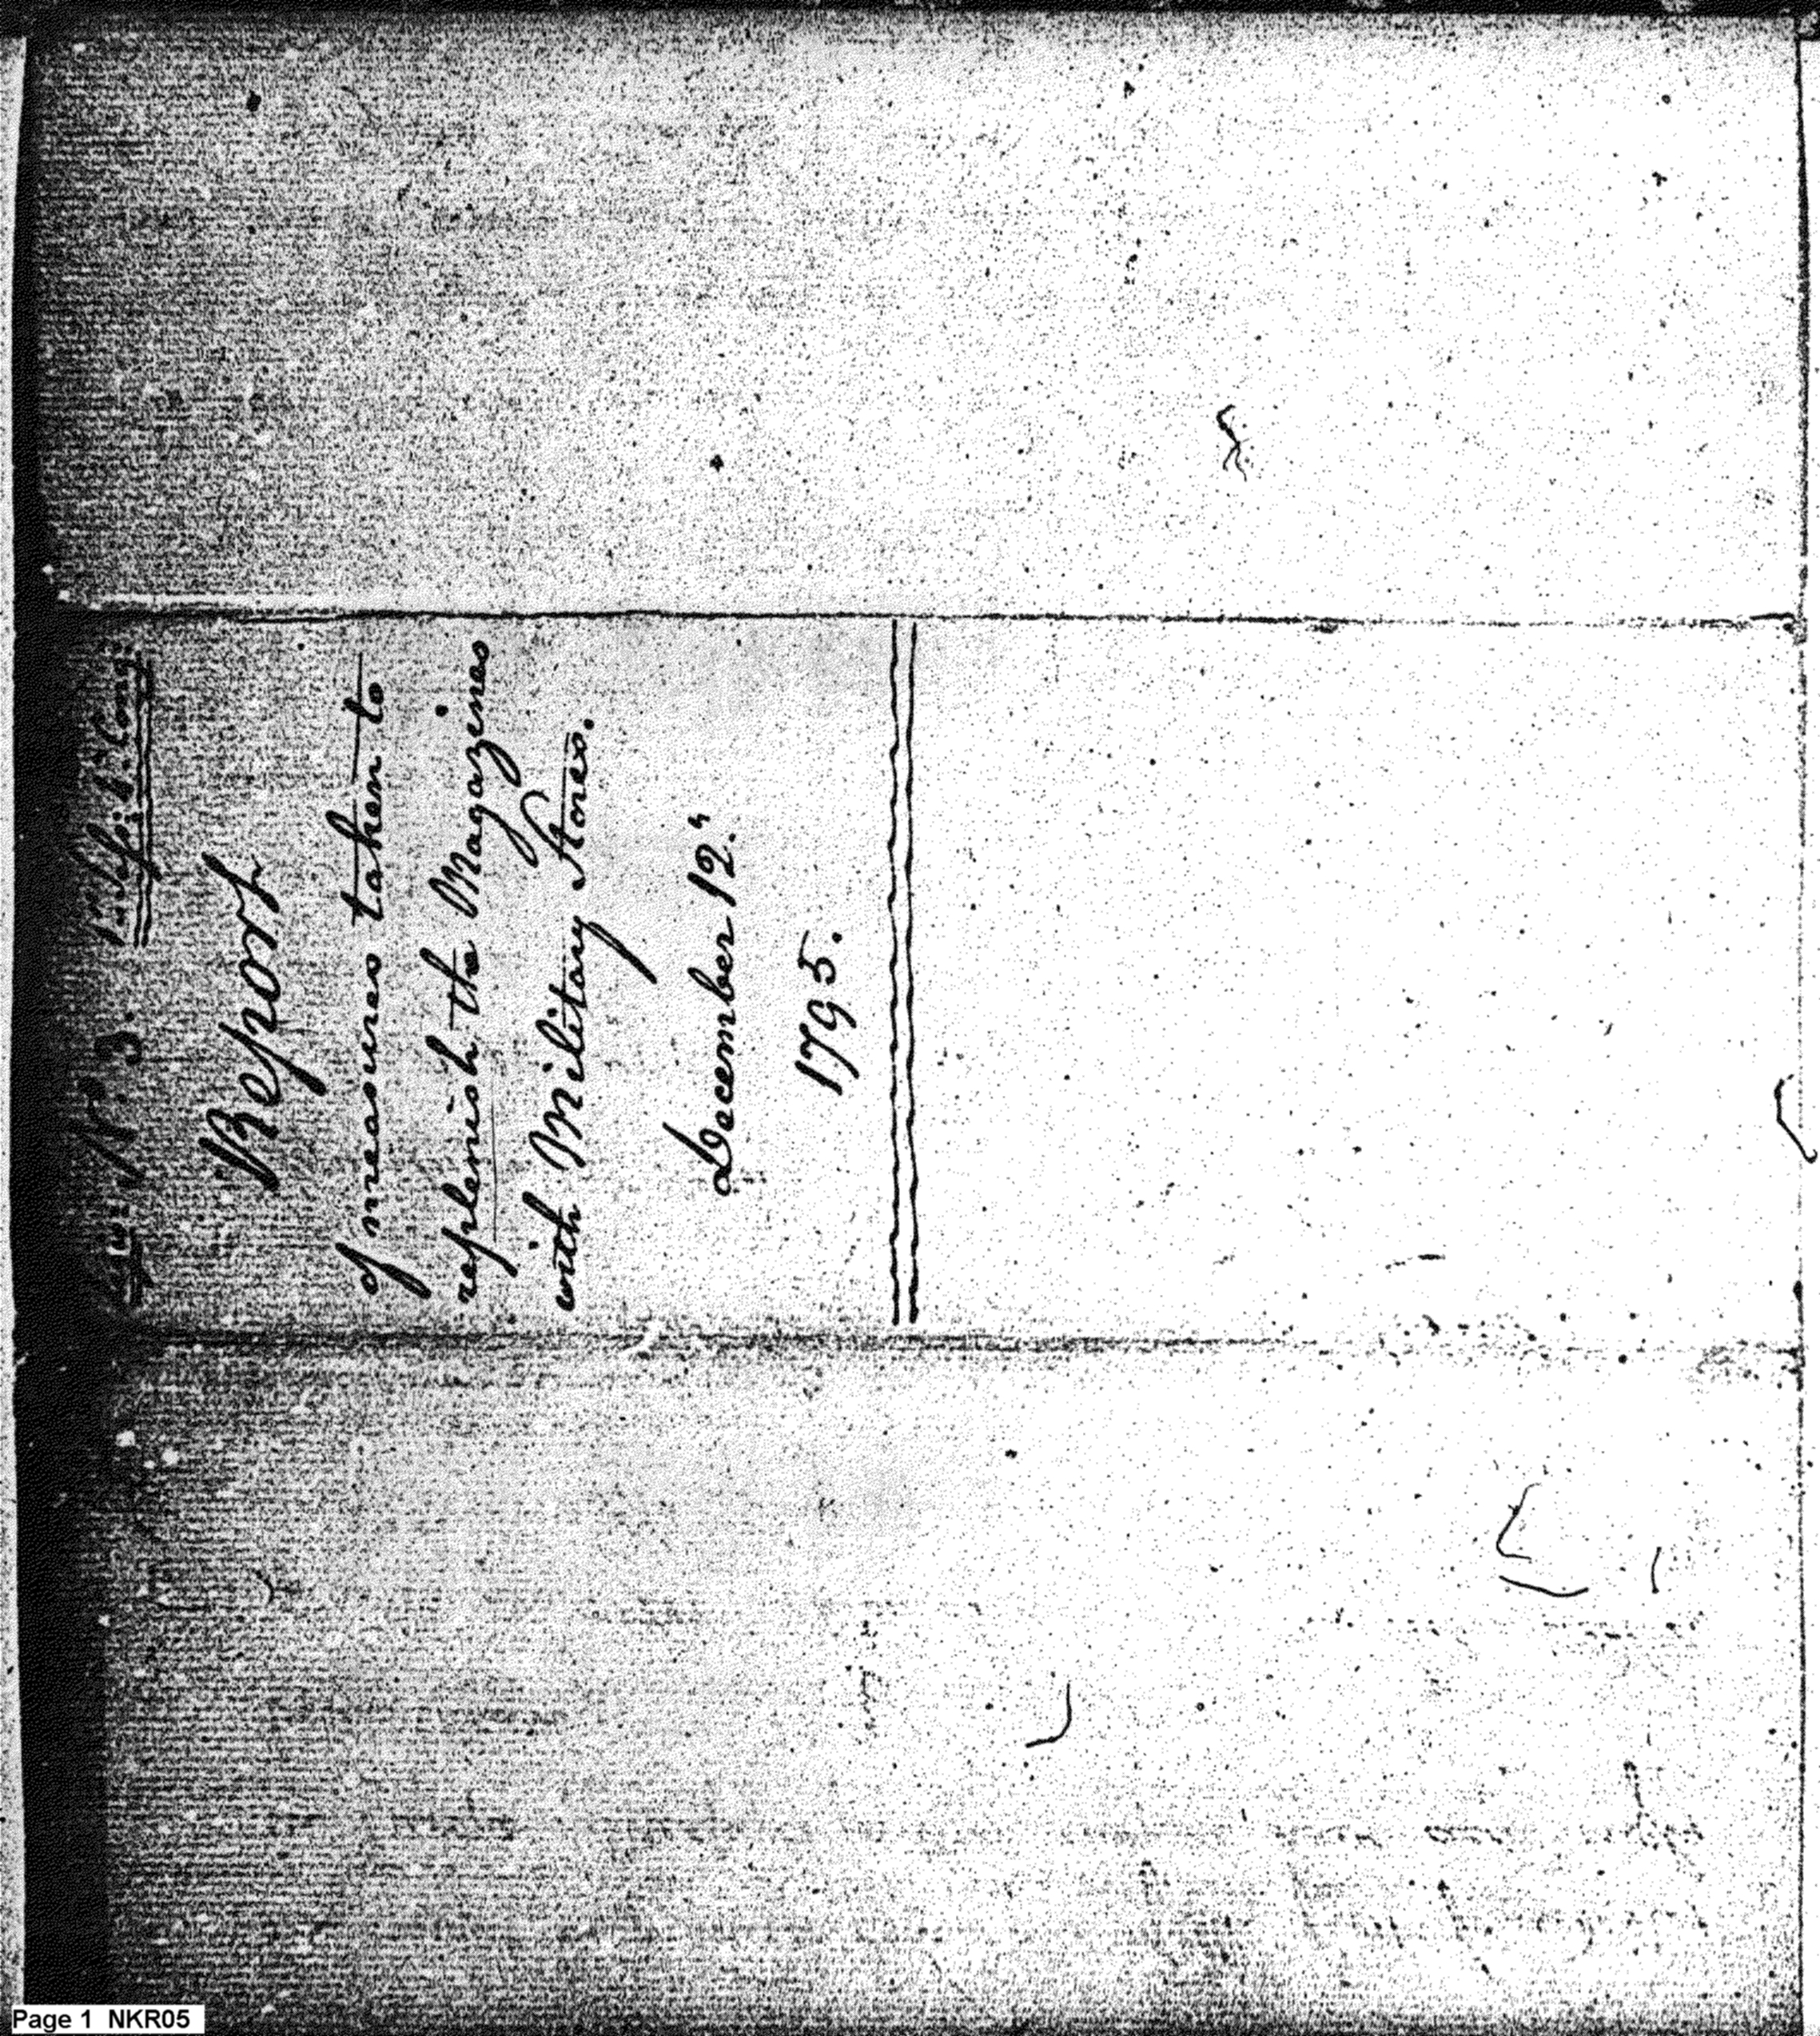 No. 3. 1st Ses: 4th Cong:
Report
of measures taken to
replenish the Magazines
with Military Stores.
December 12.th
1795.
Page 1 NKR05